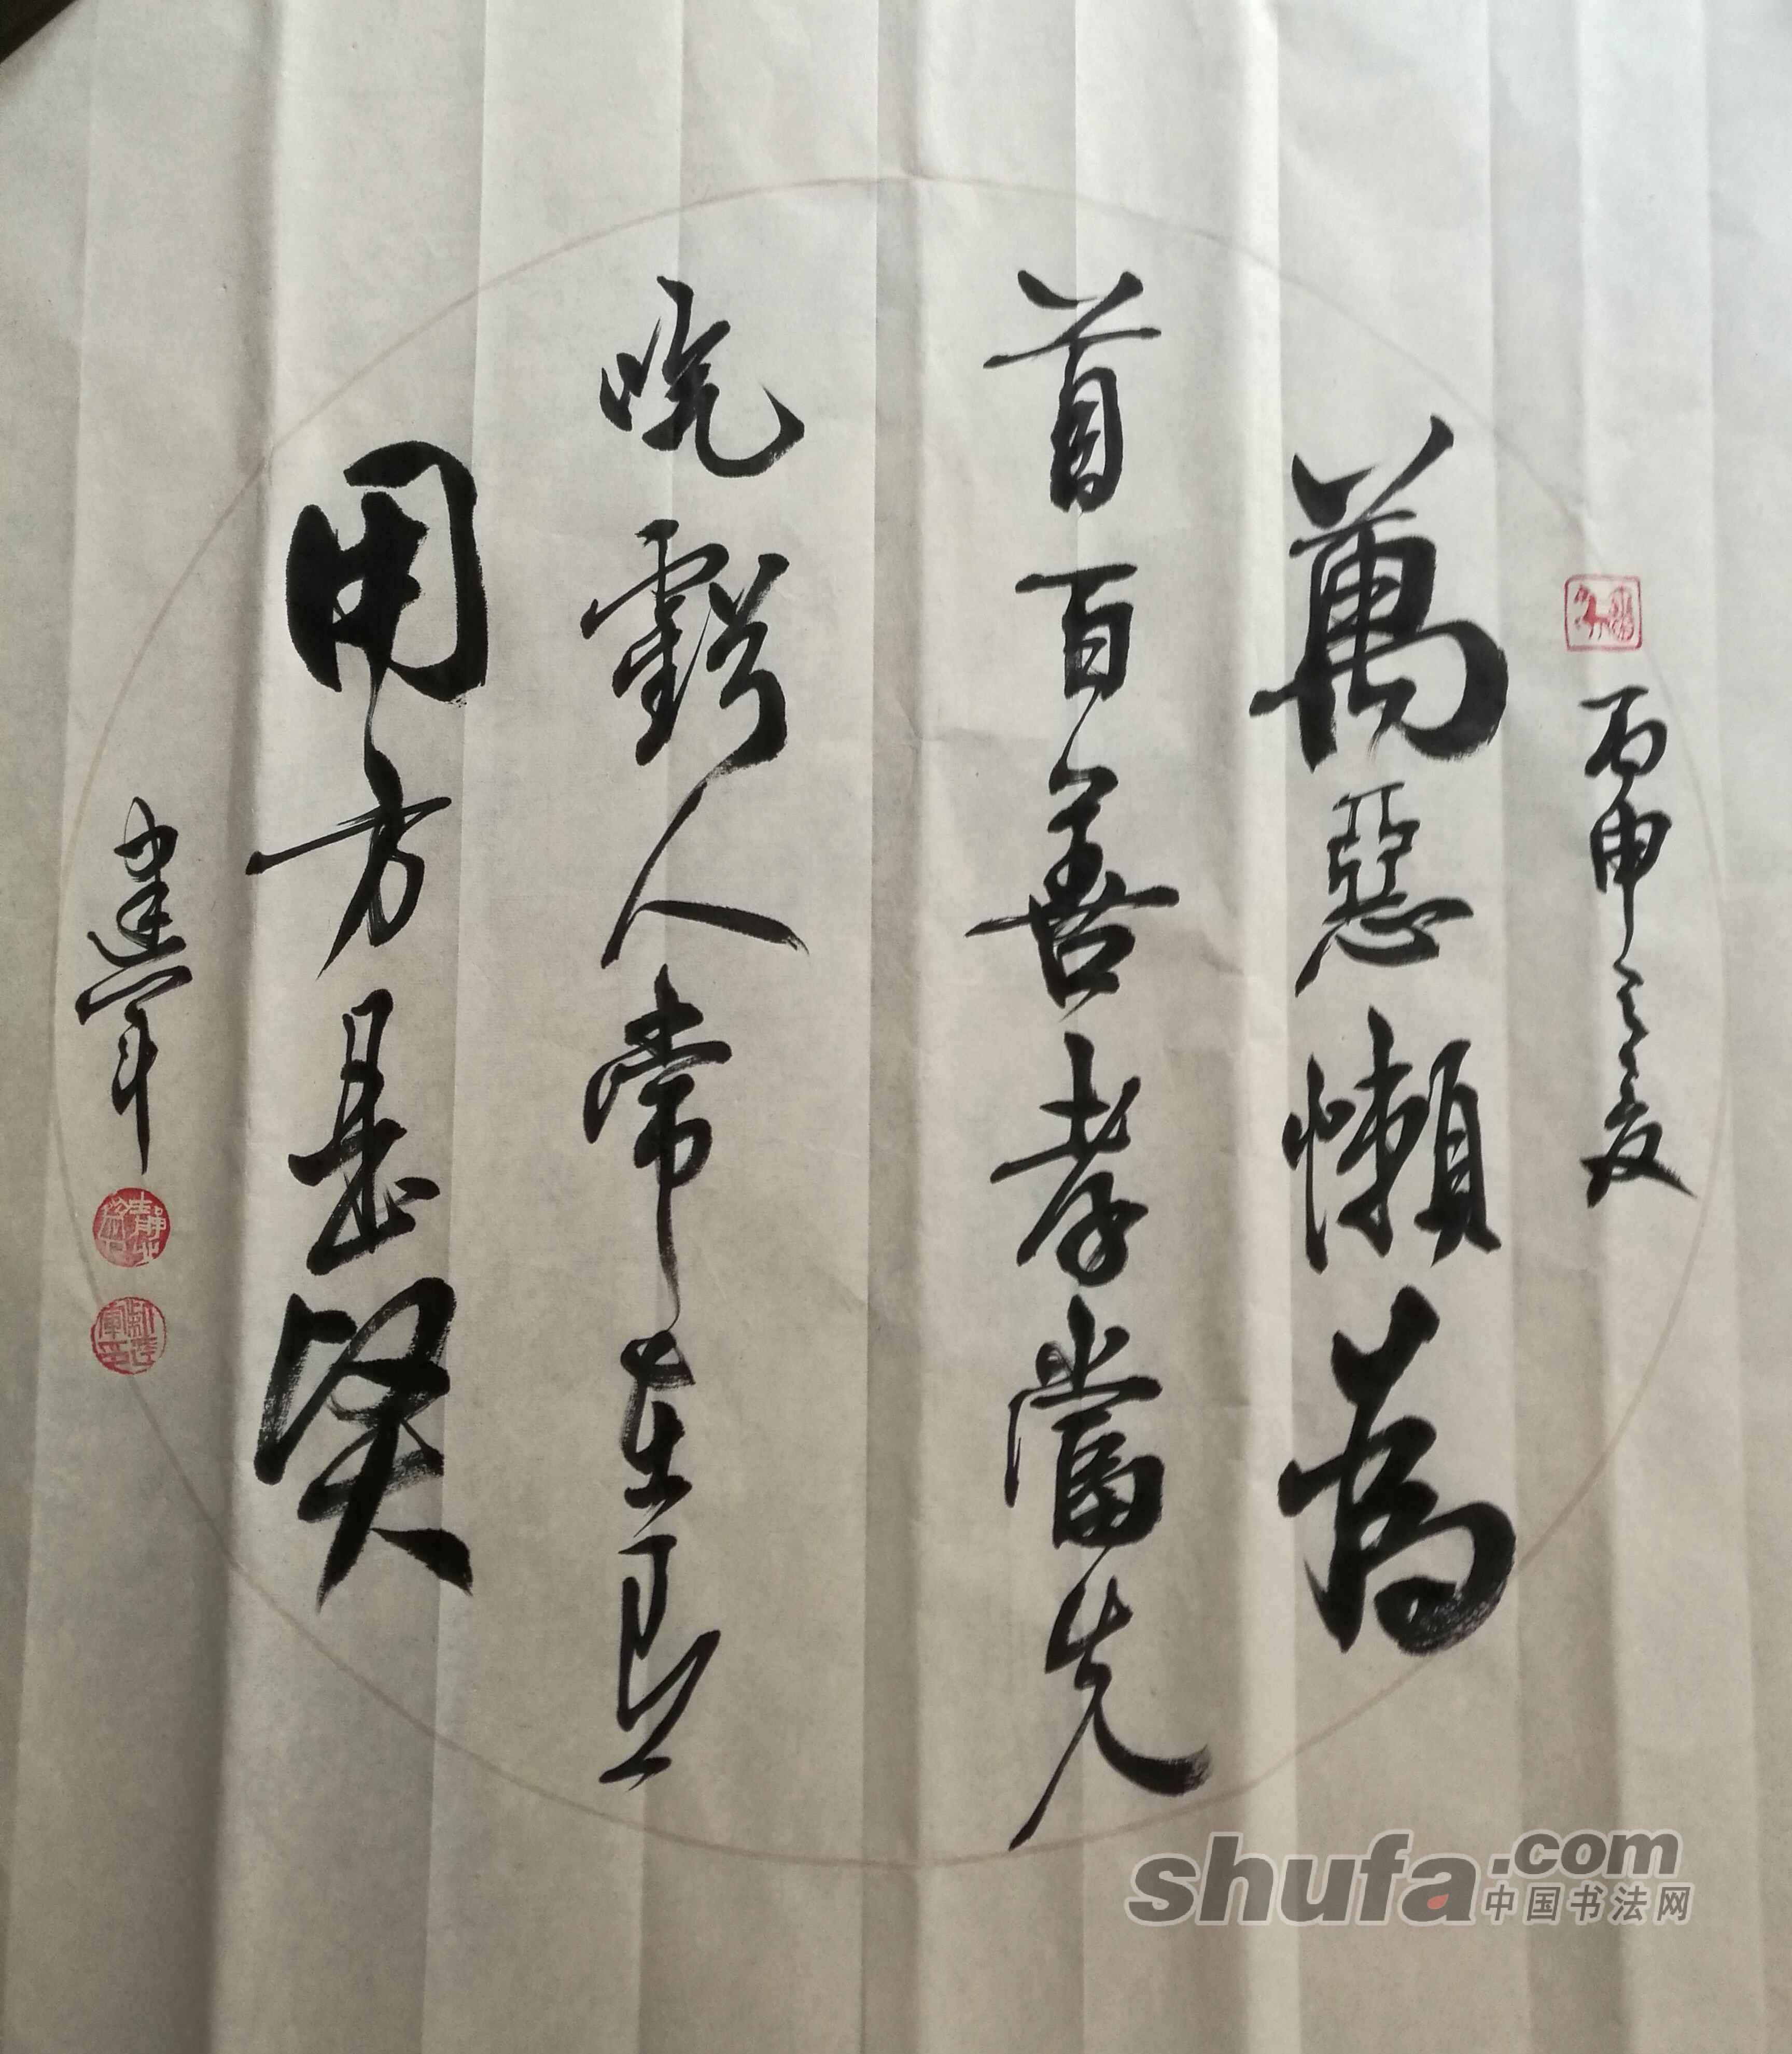 丙申之夏
萬惡懶為
首百善孝當先
吃虧人常在良
用方是賢
建军
shufa.com
中国书法网